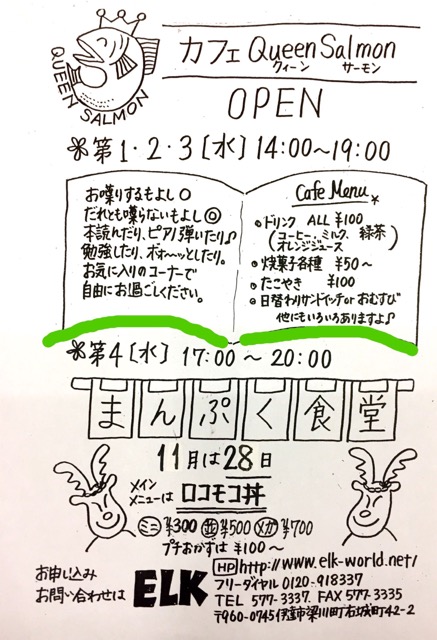 QUEEN SALMON
カフェ Queen Salmon
クィーン サーモン
OPEN
第1・2・3[水] 14:00〜19:00
お喋りするもよし○
だれとも喋らないもよし◎
本読んだり、ピアノ弾いたり♪
勉強したり、ボォ〜ッとしたり。
お気に入りのコーナーで
自由にお過ごしください。
Cafe Menu
ドリンク ALL ¥100
(コーヒー、ミルク、緑茶
オレンジジュース)
焼菓子各種 ¥50〜
たこやき ¥100
日替わりサンドイッチor おむすび
他にもいろいろありますよ♪
第4[水] 17:00〜20:00
まんぷく食堂
11月は28日
メイン
メニューは ロコモコ丼
ミニ¥300 並¥500 メガ¥700
プチおかずは ¥100〜
お申し込み
お問い合わせは
ELK
HP http://www.elk-world.net/
フリーダイヤル 0120-918337
TEL 577-3337. FAX 577-3335
〒960-0745 伊達市梁川町右城町42-2